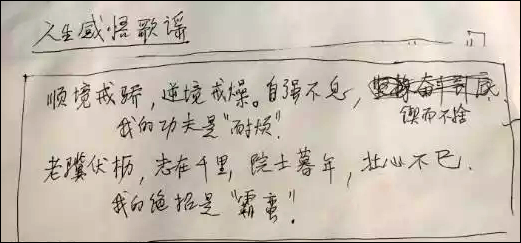 人生感悟歌谣
顺境戒骄，逆境戒燥。自强不息，
锲而不舍
我的功夫是"耐烦"。
老骥伏枥，志在千里，院士暮年，壮心不已.
我的绝招是"霸蛮"。